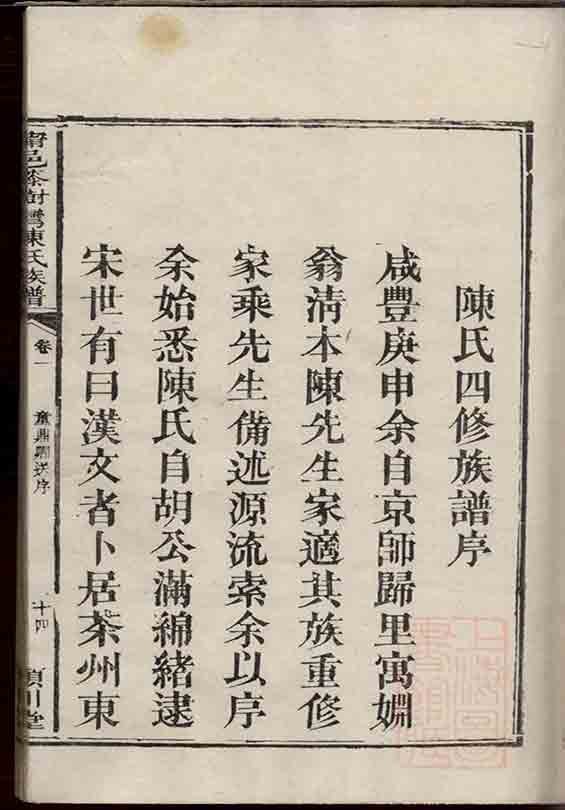 陳氏四修族譜序
咸豐庚申余自京師歸里寓婣
翁清本陳先生家適其族重修
家乘先生備述源流索余以序
余始悉陳氏自胡公滿綿緒逮
宋世有曰漢文者卜居茶州東
甯邑茶樹灣陳氏族譜
卷一
童鼎
序
十四
潁川堂